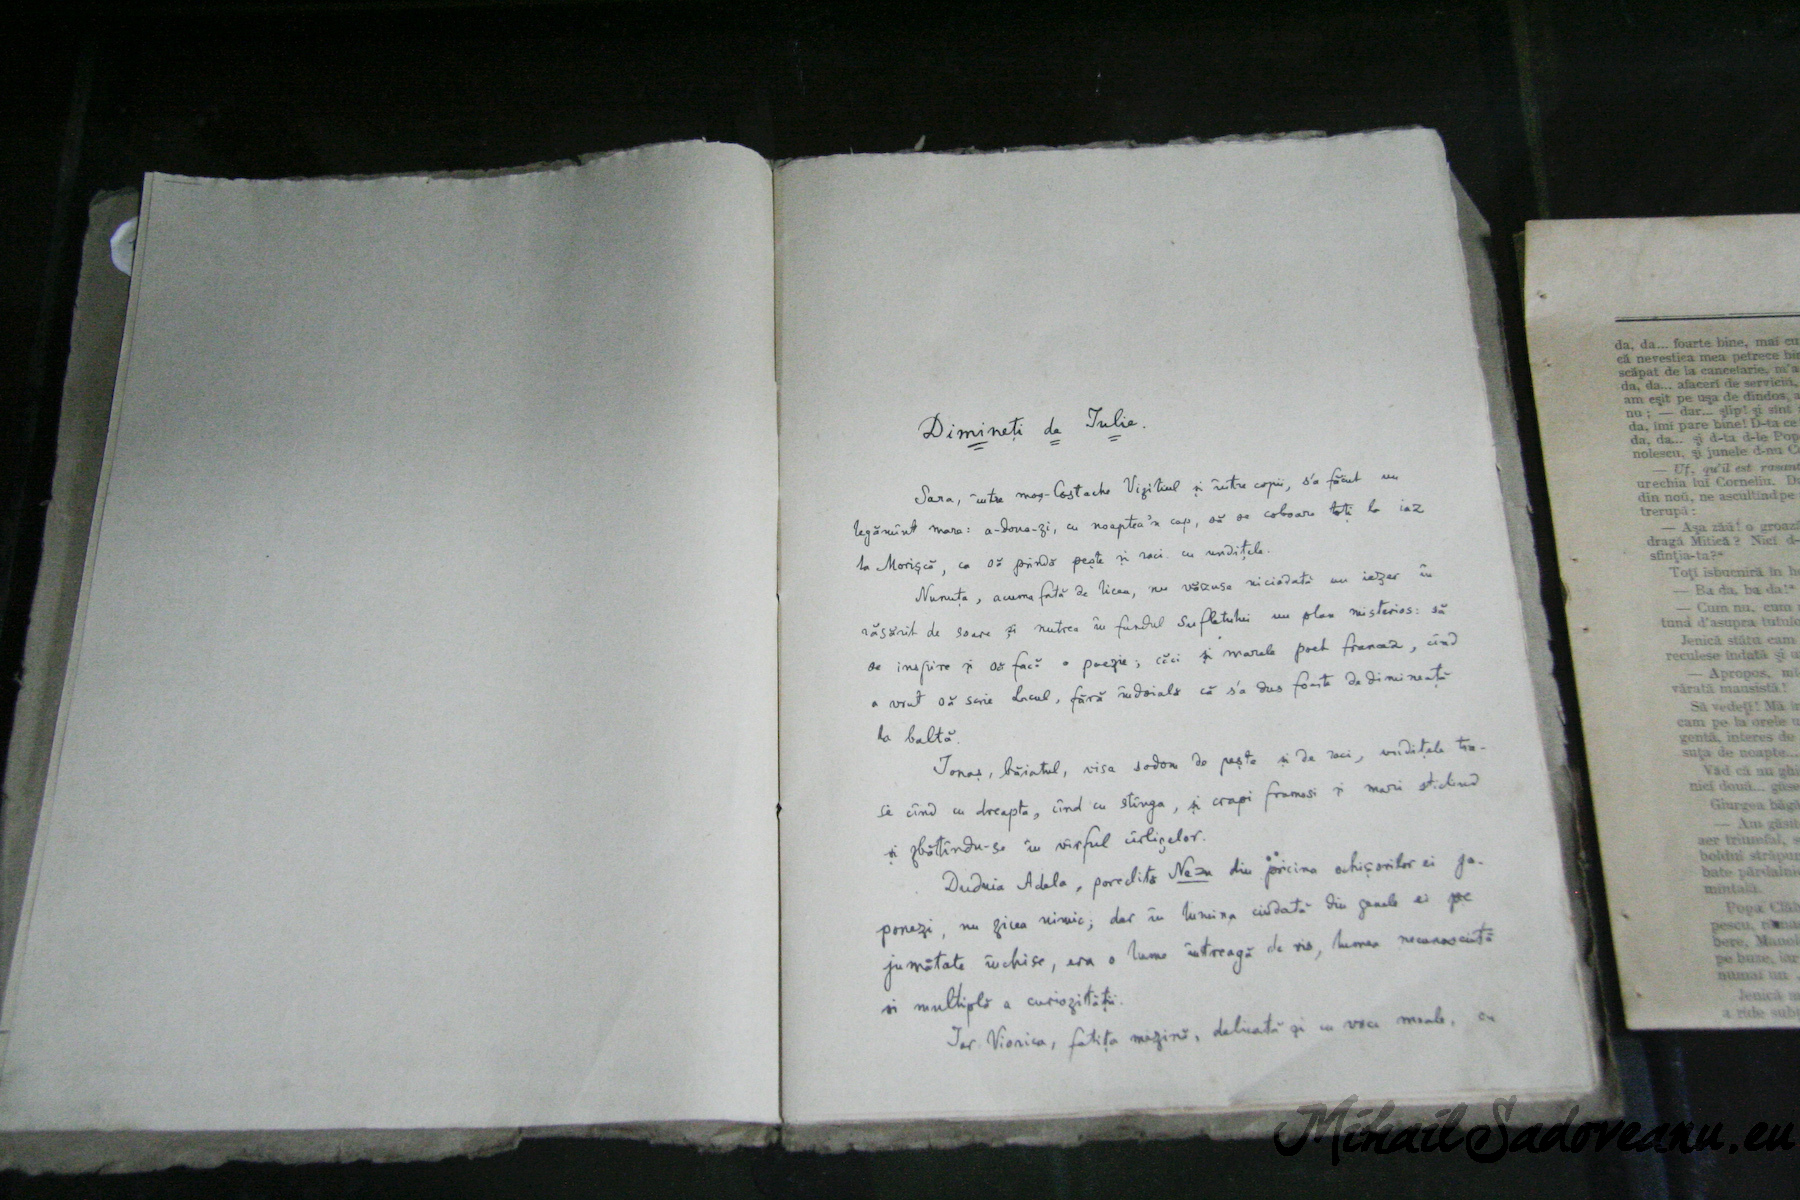 Dimineți de Iulie.
Sara, între moș-Costache Vizitiul și între copii, s'a făcut un
legămînt mare: a-doua-zi, cu noaptea'n cap, să se coboare toți la iaz
la Morișcă, ca să prindă pește și raci cu undițele.
Nunuța, acuma fată de liceu, nu văzuse niciodată un iezer în
răsărit de soare și nutrea în fundul sufletului un plan misterios: să
se inspire și să facă o poezie; căci și marele poet francez, cînd
a vrut să scrie Lacul, fără îndoială că s'a dus foarte dedimineață
la baltă.
Ionaș, băiatul, visa sodom de pește și de raci, undițele tra-
se cînd cu dreapta, cînd cu stînga, și crapi frumoși și mari sticlind
și zbătîndu-se în vîrful cîrligelor.
Duduia Adela, poreclită Nazu din pricina ochișorilor ei ja-
ponezi, nu zicea nimic; dar în lumina ciudată din genele ei pe
jumătate închise, era o lume întreagă de vis, lumea necunoscută
și multiplă a curiozității.
Iar Viorica, fetița mezină, delicată și cu voce moale, cu
da, da... foarte bine, mai
că nevestica mea petrece
scăpat de la cancelarie,
da, da... afaceri de serviciu,
am eșit pe ușa de dindos,
nu; — dar... șlip! și sînt
da, îmi pare bine! D-ta
da, da... și d-ta d-le
nolescu, și junele d-nu
— Uf, qu'il est
urechia lui Corneliu.
din noŭ, ne ascultînd pe
trerupă:
— Așa zăŭ! o
dragă Mitică? Nicĭ
sfinția-ta?"
Toțĭ isbucniră în
— Ba da, ba da!"
— Cum nu, cum
tună d'asupra
Jenică stătu cam
reculese îndată și
— Apropos,
vărată mansistă!
Să vedețĭ! Mă
cam pe la orele
gentă, interes de
suța de noapte...
Văd că nu
nicĭ două...
Giurgea băgă
— Am
aer triumfal,
boldul
bate
mintală.
Popa
pescu,
bere,
pe buze, iar
numaĭ un
Jenică
a rîde
MihailSadoveanu.eu